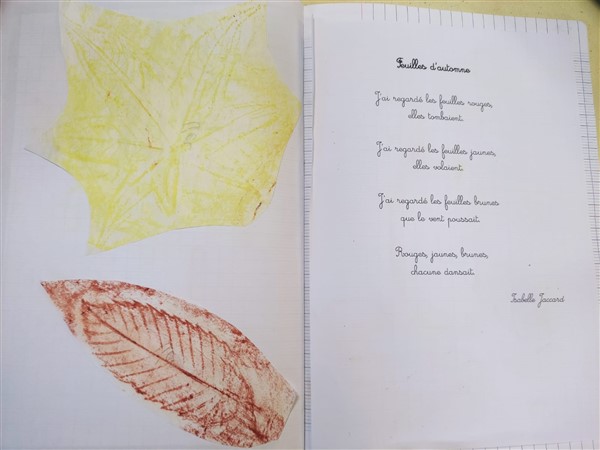 Feuilles d'automne
J'ai regardé les feuilles rouges,
elles tombaient.
J'ai regardé les feuilles jaunes,
elles volaient.
J'ai regardé les feuilles brunes
que le vent poussait.
Rouges, jaunes, brunes,
chacune dansait.
Isabelle Jaccard